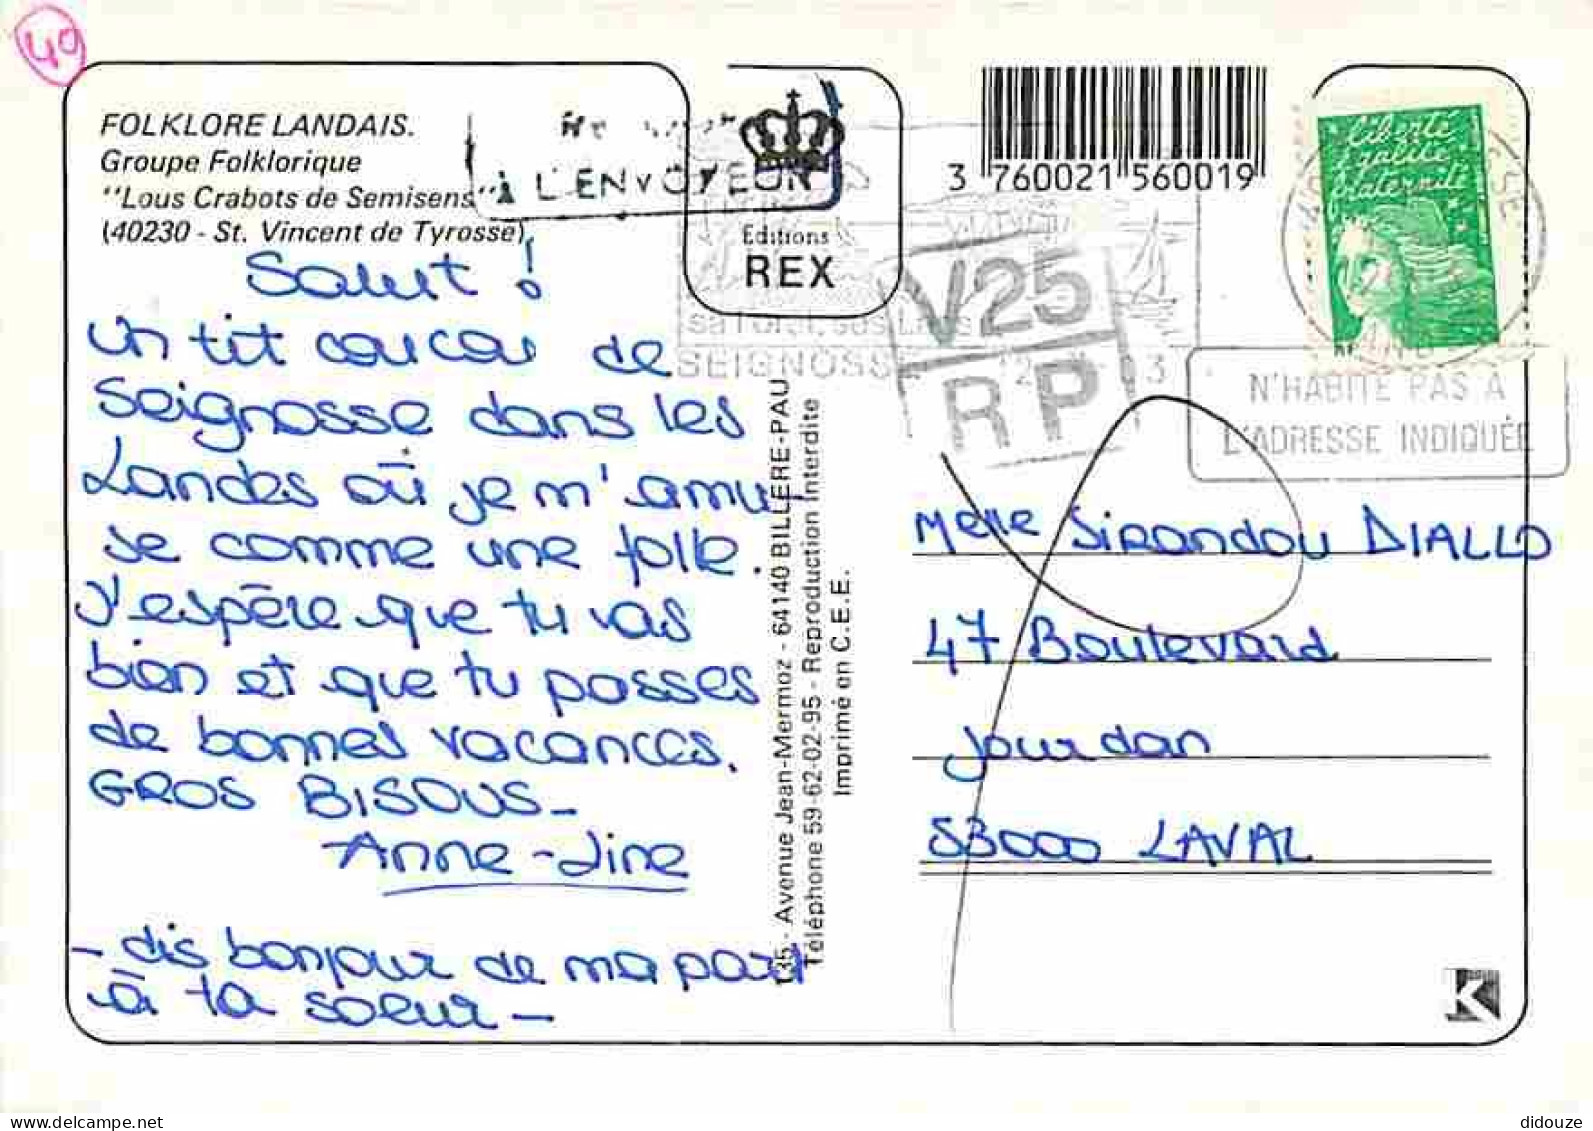 40
FOLKLORE LANDAIS.
Groupe Folklorique
"Lous Crabots de Semisens"
(40230 - St. Vincent de Tyrosse)
À L'ENVOYEUR
Editions
REX
3 760021 560019
Liberté
Egalité
Fraternité
sa Forêt, ses Lacs
SEIGNOSSE
V25
RP
N'HABITE PAS À
L'ADRESSE INDIQUÉE
Salut !
un tit coucou de
Seignosse dans les
Landes où je m'amu-
se comme une folle.
J'espère que tu vas
bien et que tu passes
de bonnes vacances.
GROS BISOUS_
Anne-Line
- dis bonjour de ma part
à ta soeur -
135 - Avenue Jean-Mermoz - 64140 BILLÈRE-PAU
Téléphone 59-62-02-95 - Reproduction Interdite
Imprimé en C.E.E.
Melle Sirandou DIALLO
47 Boulevard
Jourdan
53000 LAVAL
K
delcampe.net
didouze